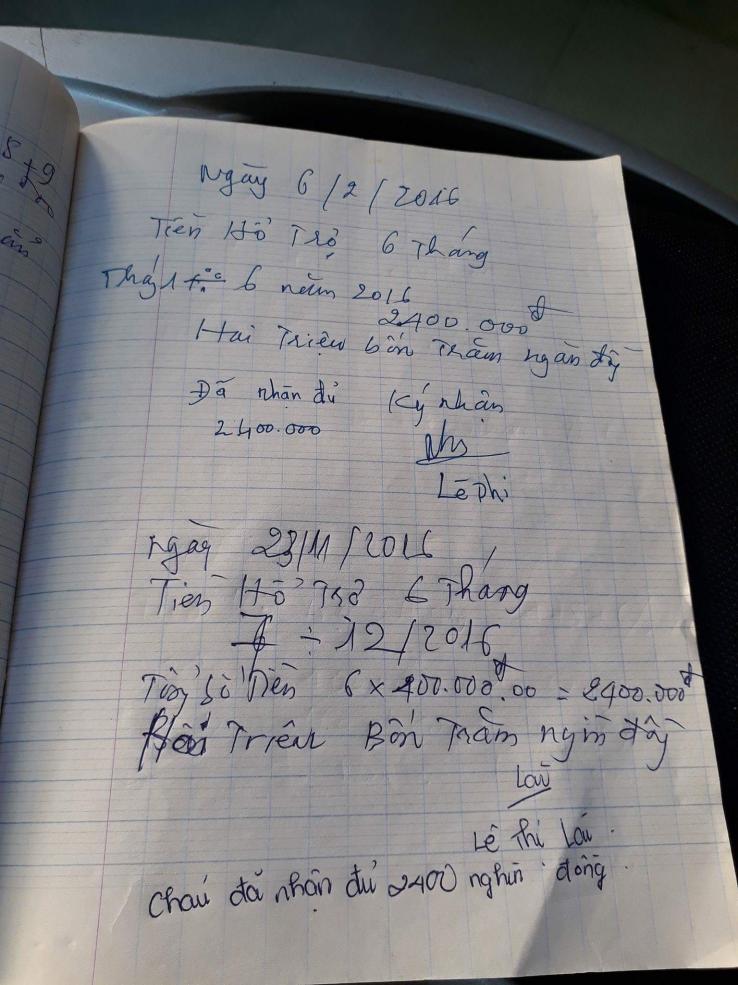 5 + 9
Ngày 6/2/2016
Tiền Hổ Trợ 6 Tháng
Thág 1 6 năm 2016
2400.000đ
Hai Triệu bốn Trăm ngàn đồg
Đã nhận đủ Ký nhận
2400.000
Lê Thi
Ngày 23/11/2016
Tiền Hổ Trợ 6 Tháng
7 ÷ 12/2016
Tổng số Tiền 6 x 400.000đ.00 = 2400.000đ
Triệu Bốn Trăm nghìn đồg
Lê Thi Lai
Cháu đã nhận đủ 2400 nghìn đồng.